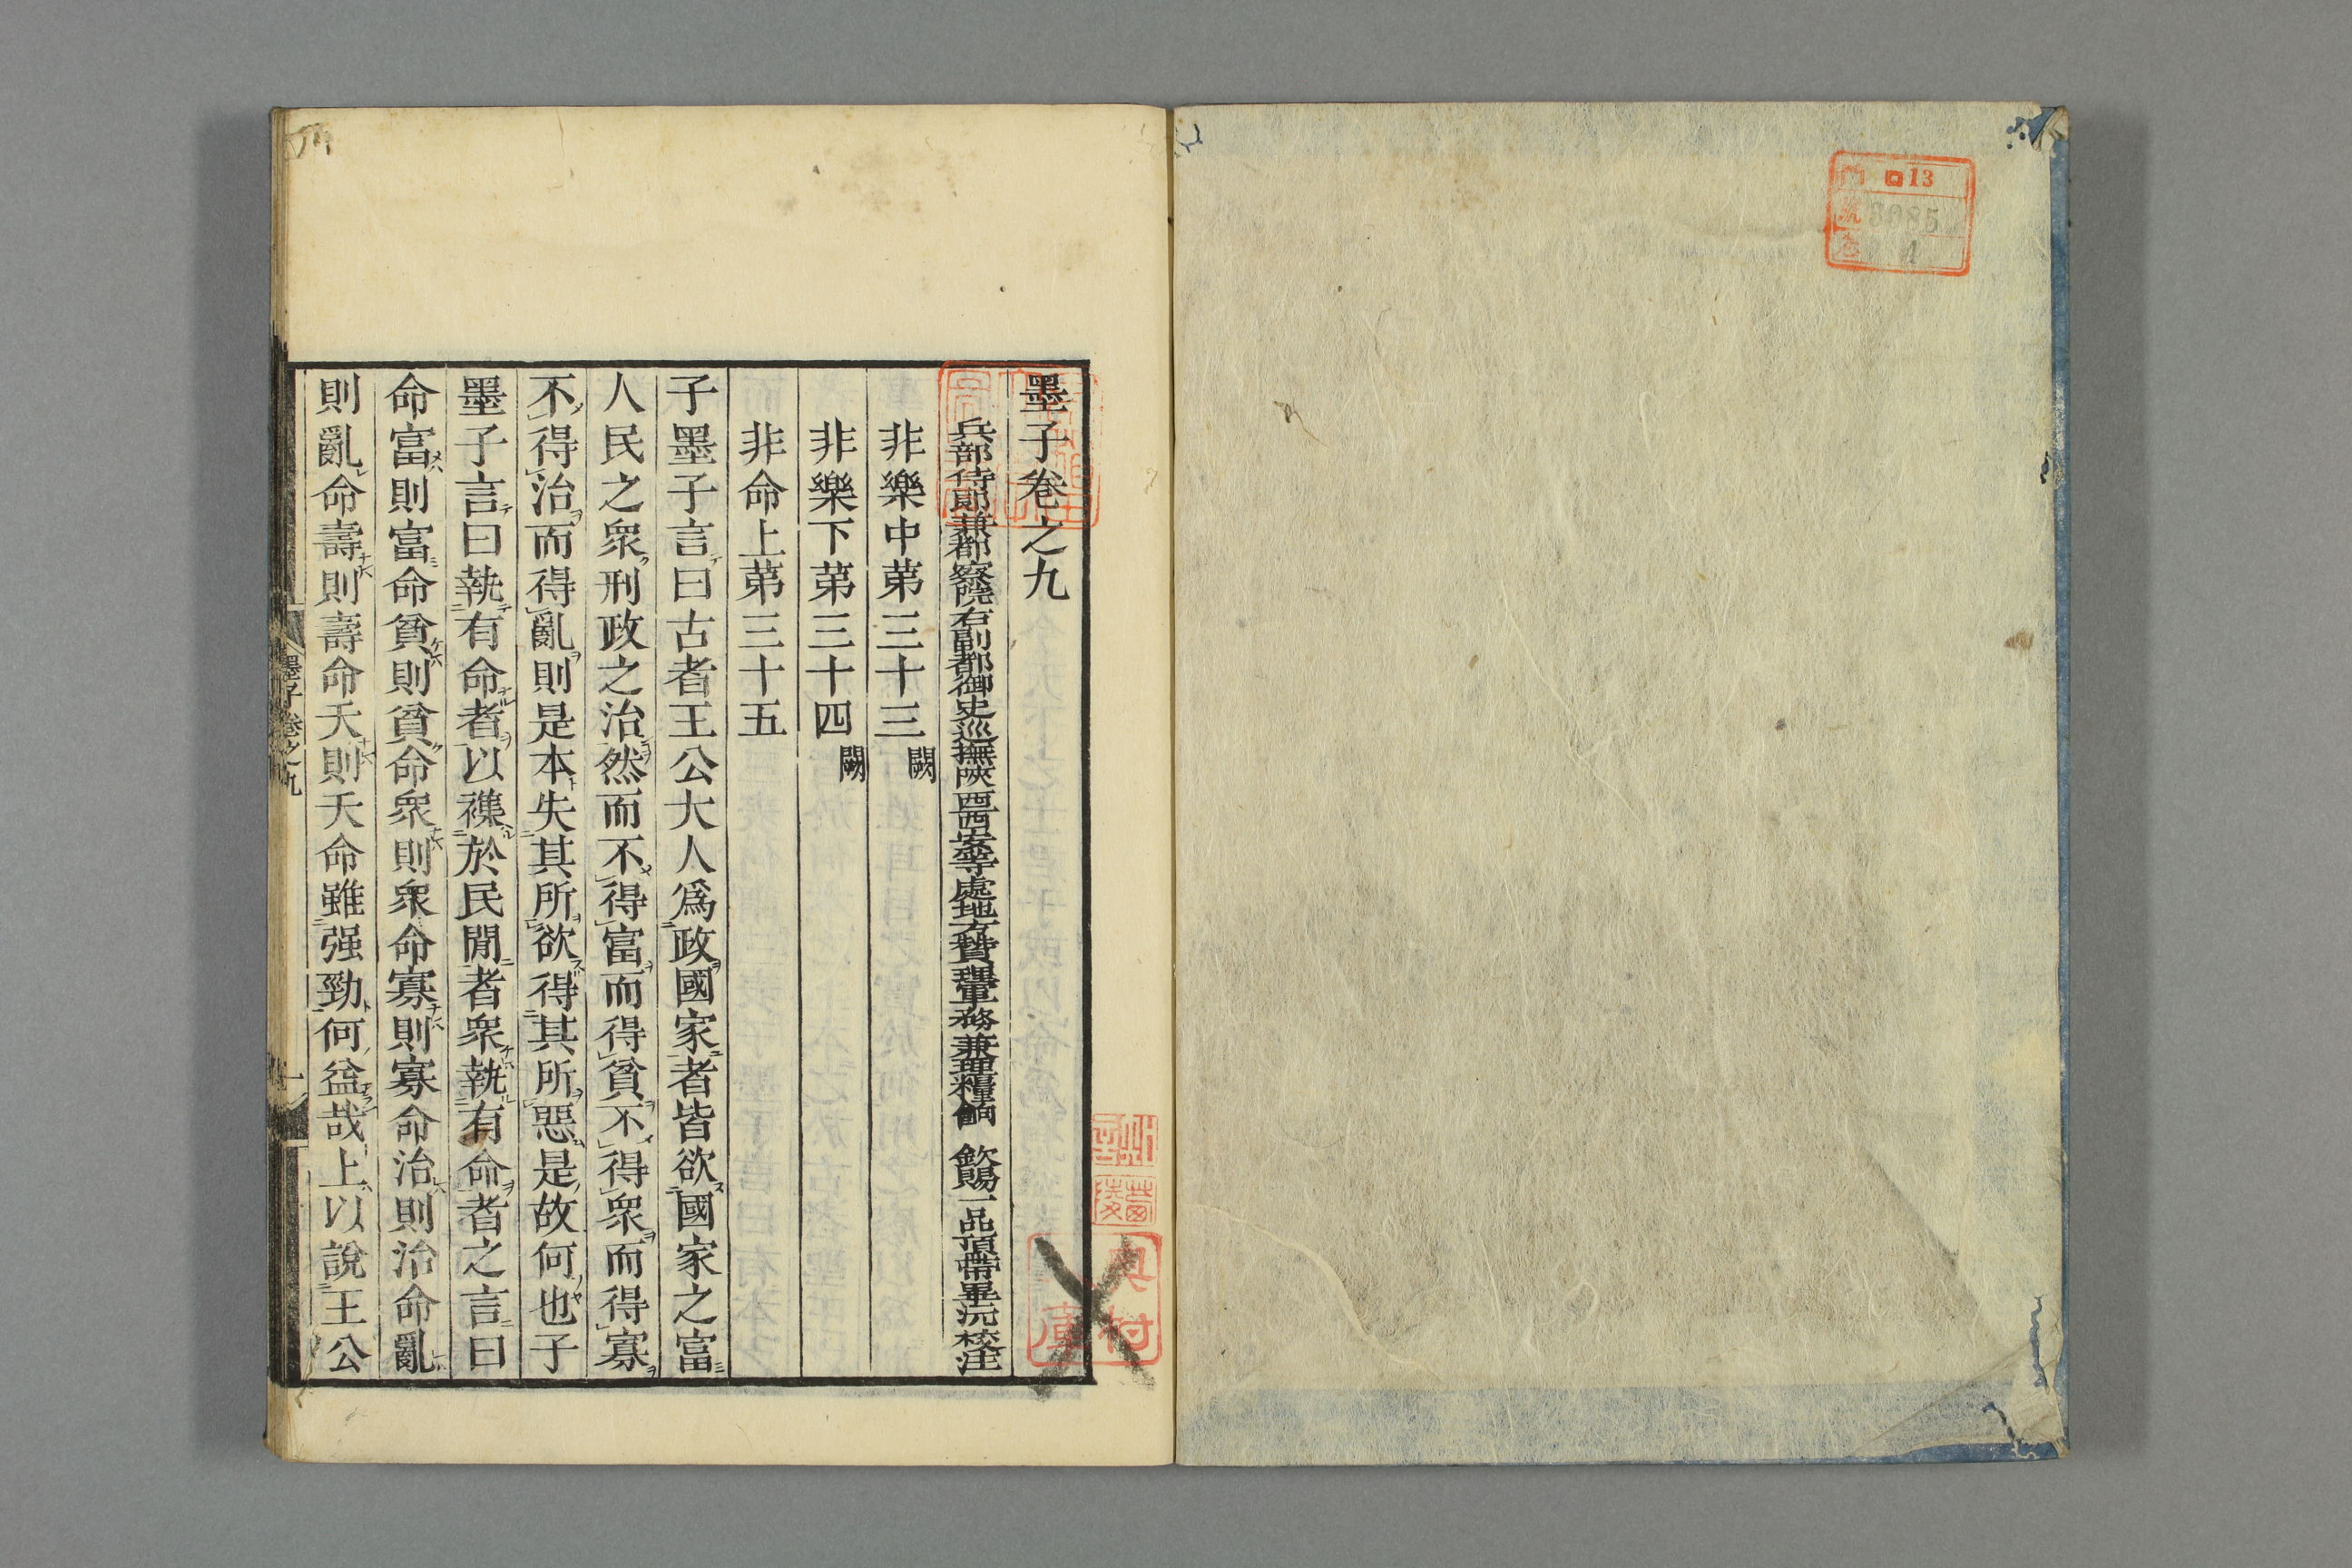 13
3085
4
墨子卷之九
兵部侍郎兼都察院右副都御史巡撫陝西西安等處地方贊理軍務兼理糧餉 欽賜一品頂帶畢沅校注
非樂中第三十三 闕
非樂下第三十四 闕
非命上第三十五
子墨子言曰古者王公大人爲政國家者皆欲國家之富
人民之衆刑政之治然而不得富而得貧不得衆而得寡
不得治而得亂則是本失其所欲得其所惡是故何也子
墨子言曰執有命者以襍於民閒者衆執有命者之言曰
命富則富命貧則貧命衆則衆命寡則寡命治則治命亂
則亂命壽則壽命夭則夭命雖强勁何益哉上以說王公
墨子卷之九
一